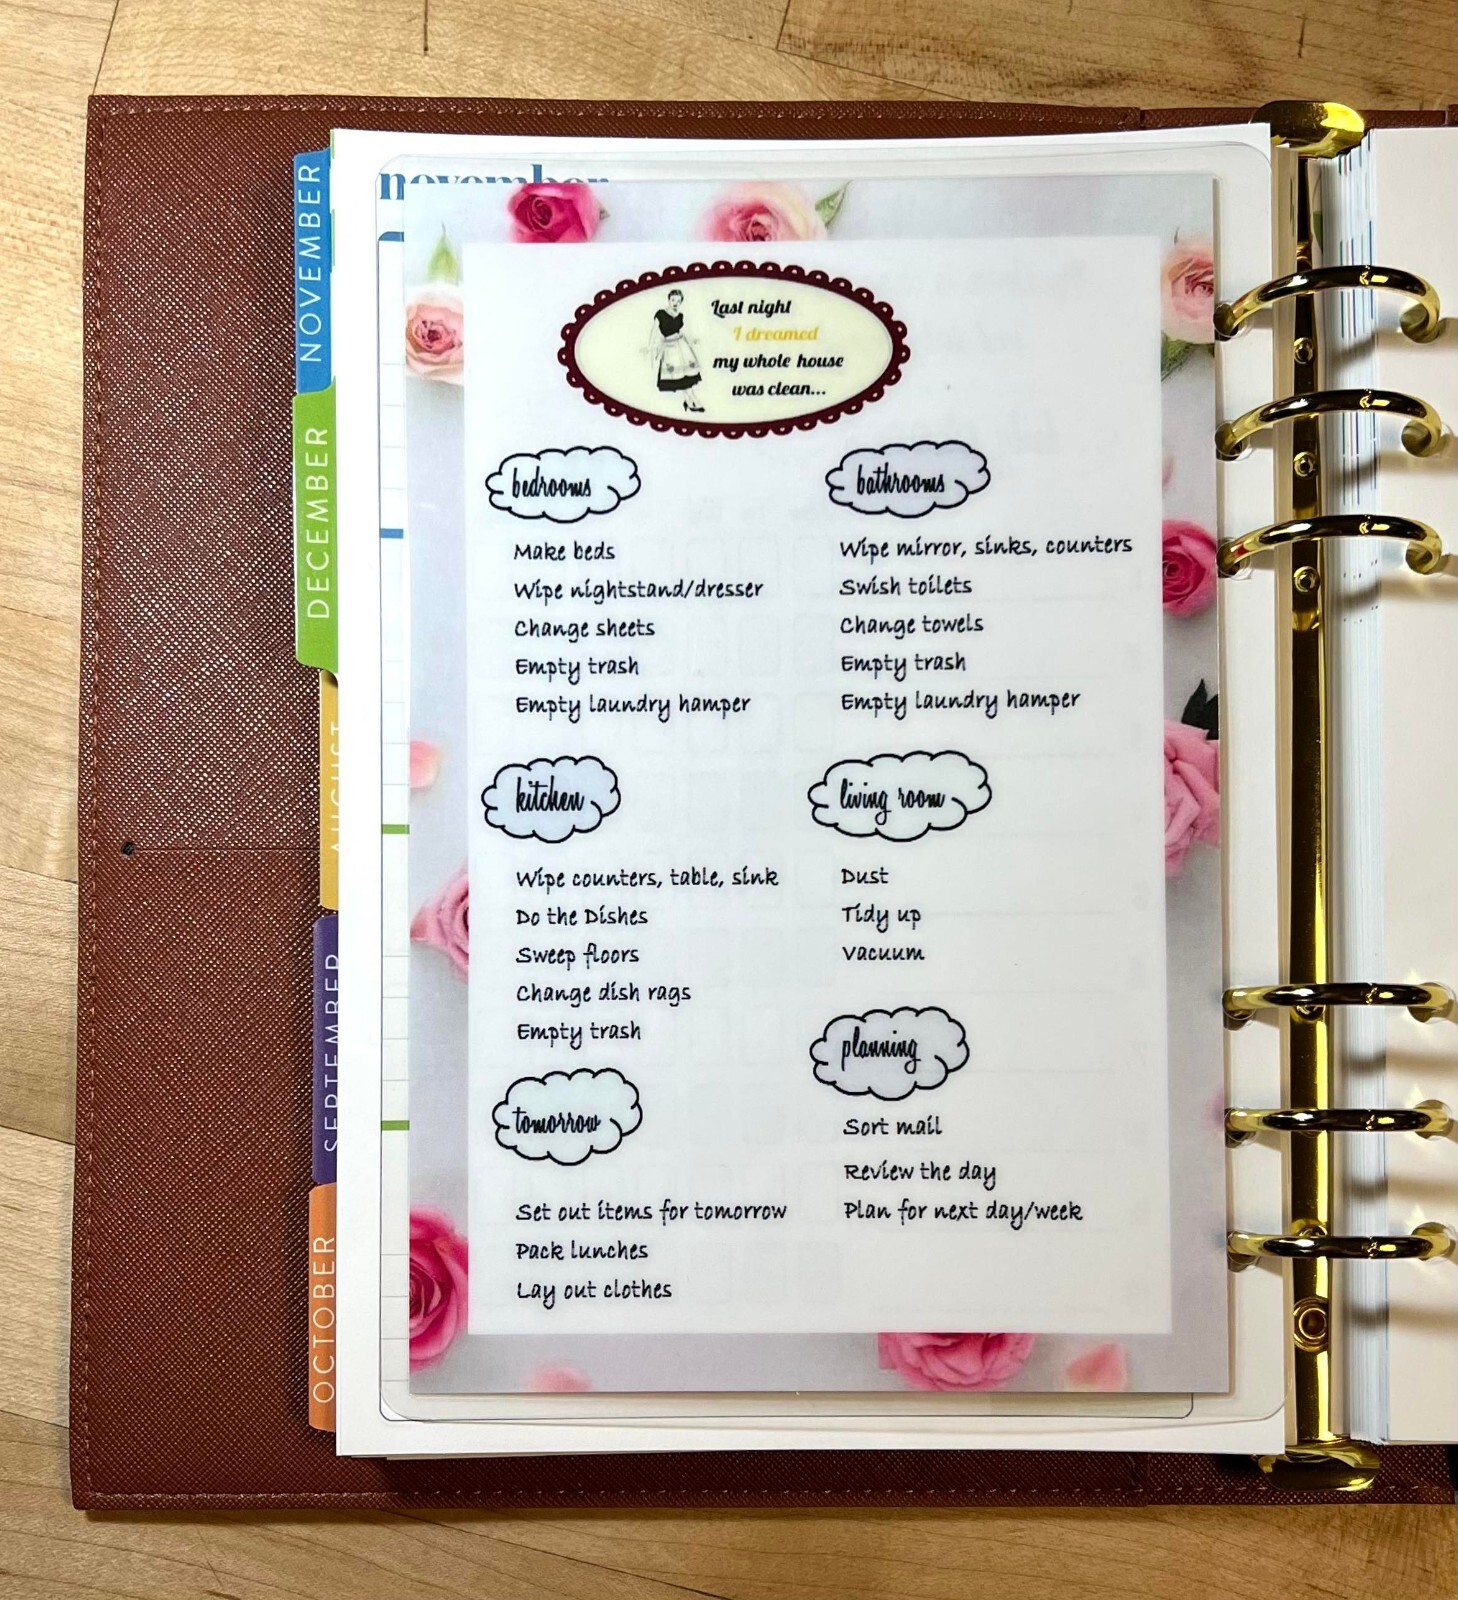 november
NOVEMBER
DECEMBER
AUGUST
SEPTEMBER
OCTOBER
Last night
I dreamed
my whole house
was clean...
bedrooms
Make beds
Wipe nightstand/dresser
Change sheets
Empty trash
Empty laundry hamper
bathrooms
Wipe mirror, sinks, counters
Swish toilets
Change towels
Empty trash
Empty laundry hamper
kitchen
Wipe counters, table, sink
Do the Dishes
Sweep floors
Change dish rags
Empty trash
living room
Dust
Tidy up
Vacuum
tomorrow
Set out items for tomorrow
Pack lunches
Lay out clothes
planning
Sort mail
Review the day
Plan for next day/week